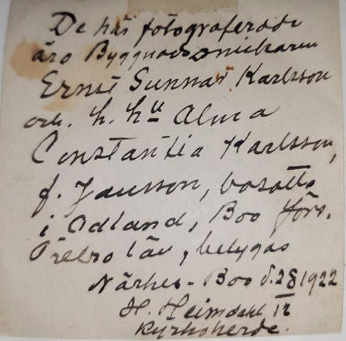 De här fotograferade
äro Byggnadssnickaren
Ernst Gunnar Karlsson
och h. hu Alma
Constantia Karlsson,
f. Jansson, bosatta
i Ödland, Boo förs.
Örebro län, betygas
Närkes-Boo d. 28 1922
H. Heimdahl
Kyrkoherde.